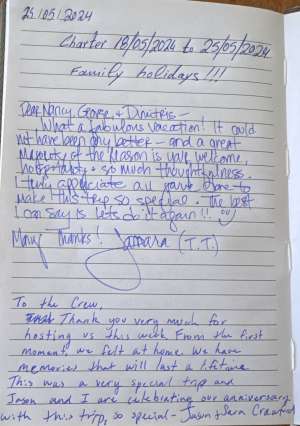 25/05/2024
Charter 18/05/2024 to 25/05/2024
Family holidays!!!
Dear Nancy, George, & Dimitris –
What a fabulous vacation! It could
not have been any better – and a great
majority of the reason is your welcome,
hospitality & so much thoughtfulness.
I truly appreciate all you've done to
make this trip so special. The best
I can say is let's do it again!!
Many Thanks! Tamara (T.T.)
To the Crew,
Thank you very much for
hosting us this week From the first
moment, we felt at home. We have
memories that will last a lifetime.
This was a very special trip and
Jason and I are celebrating our anniversary
with this trip, so special – Jason & Sara